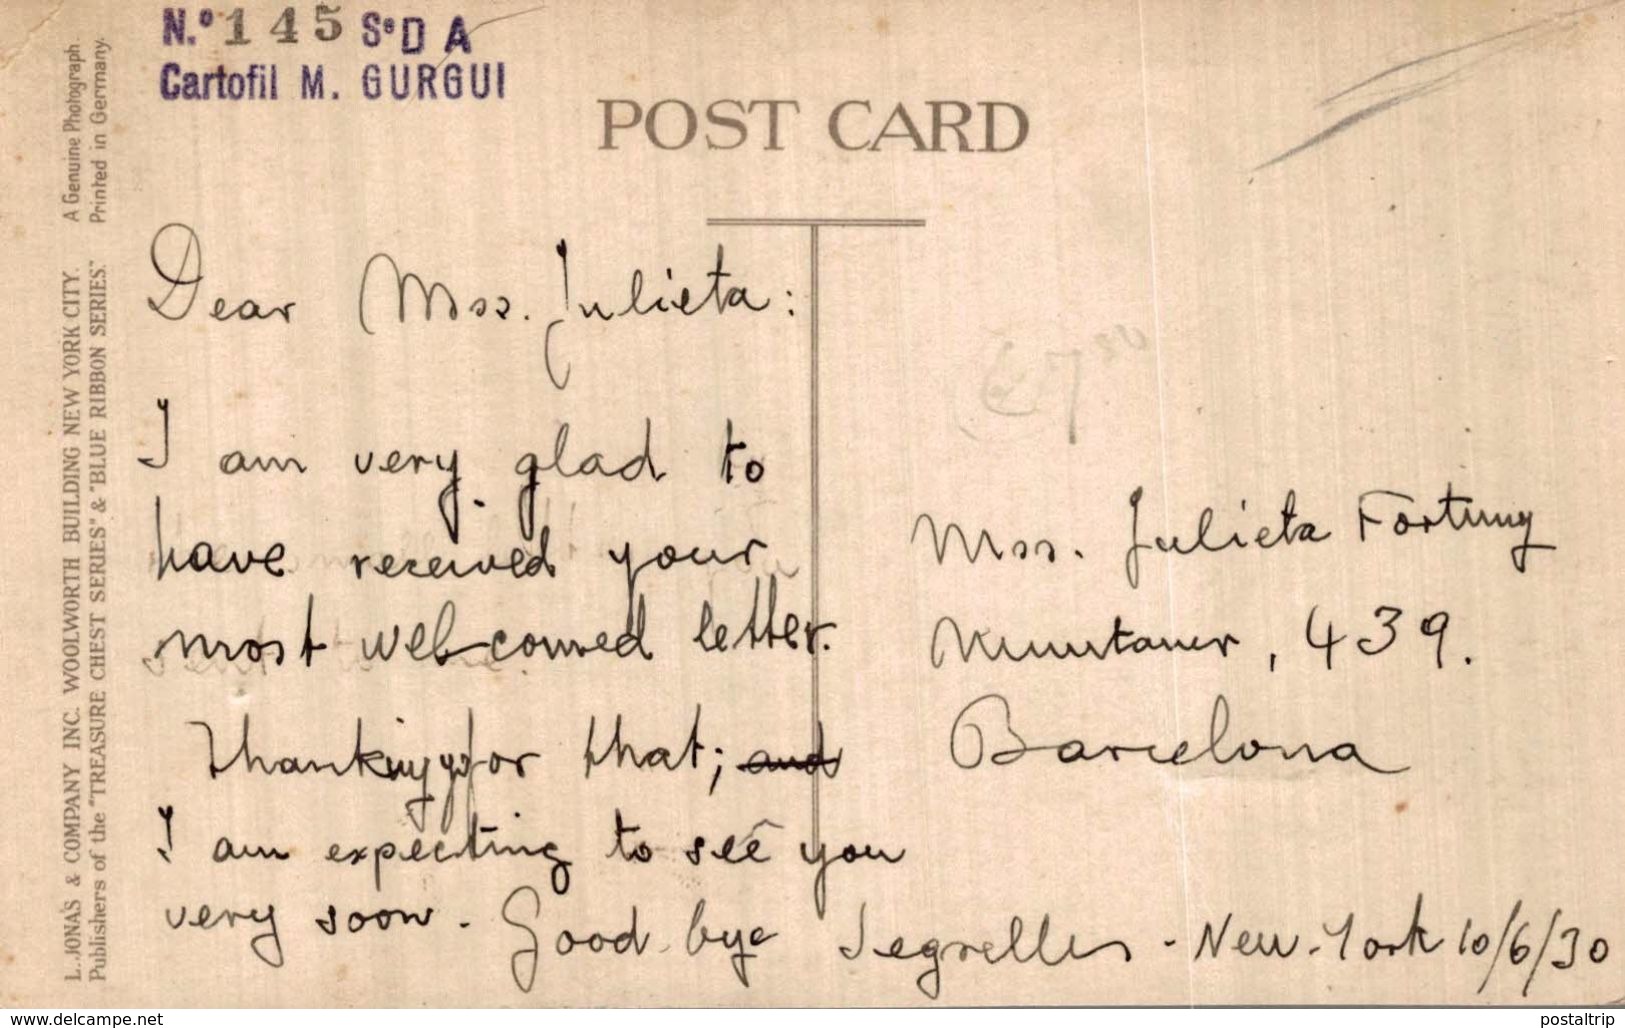 N.º 145 Sº D A
Cartofil M. GURGUI
POST CARD
A Genuine Photograph.
Printed in Germany.
L. JONAS & COMPANY INC. WOOLWORTH BUILDING NEW YORK CITY.
Publishers of the "TREASURE CHEST SERIES" & "BLUE RIBBON SERIES."
Dear Mss. Julieta:
I am very glad to
have received your
most wel-comed letter.
Thanking for that; and
I am expecting to see you
very soon. Good bye Segrelles - New-York 10/6/30
Mss. Julieta Fortuny
Muntaner, 439.
Barcelona
www.delcampe.net
postaltrip